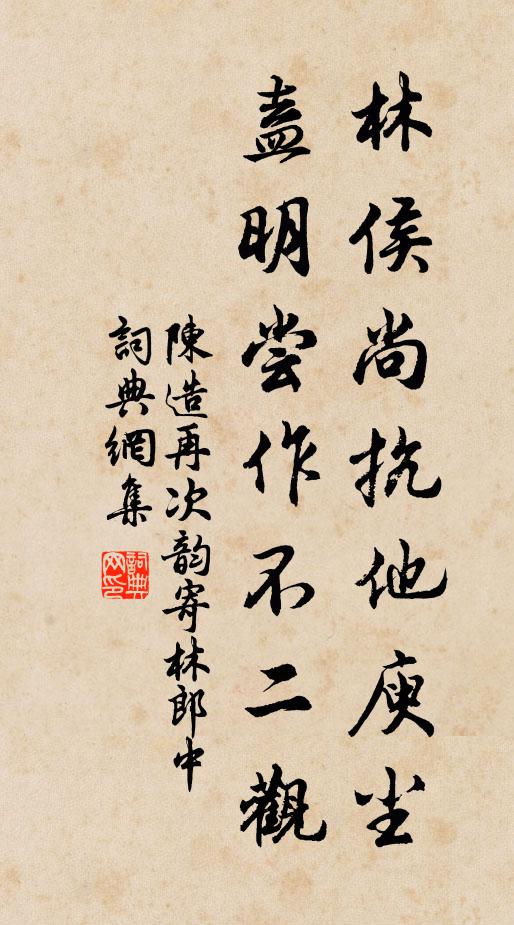 林侯尚抗他庾尘
盍明尝作不二觀
陳造再次韵寄林郎中
詞典網集
詞典網印